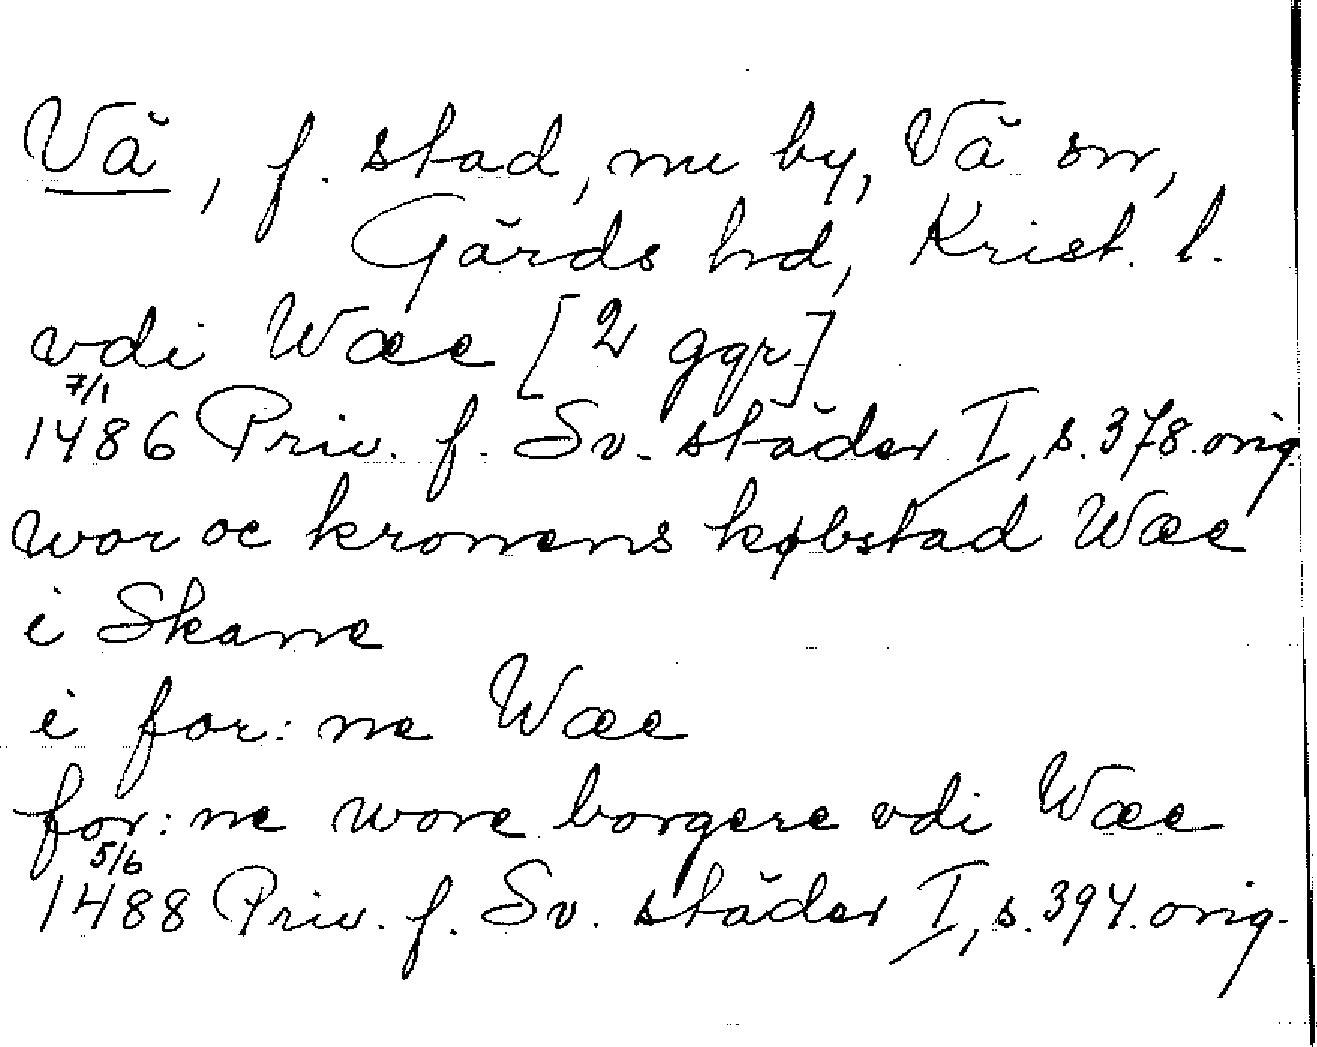 Vä, f. stad, nu by, Vä sn,
Gärds hd, Krist. l.
vdi Wæe [2 ggr]
7/1
1486 Priv. f. Sv. städer I, s. 378. orig.
wor oc kronens købstad Wæe
i Skane
i for: ne Wæe
for: ne wore borgere vdi Wæe
5/6
1488 Priv. f. Sv. städer I, s. 394. orig.